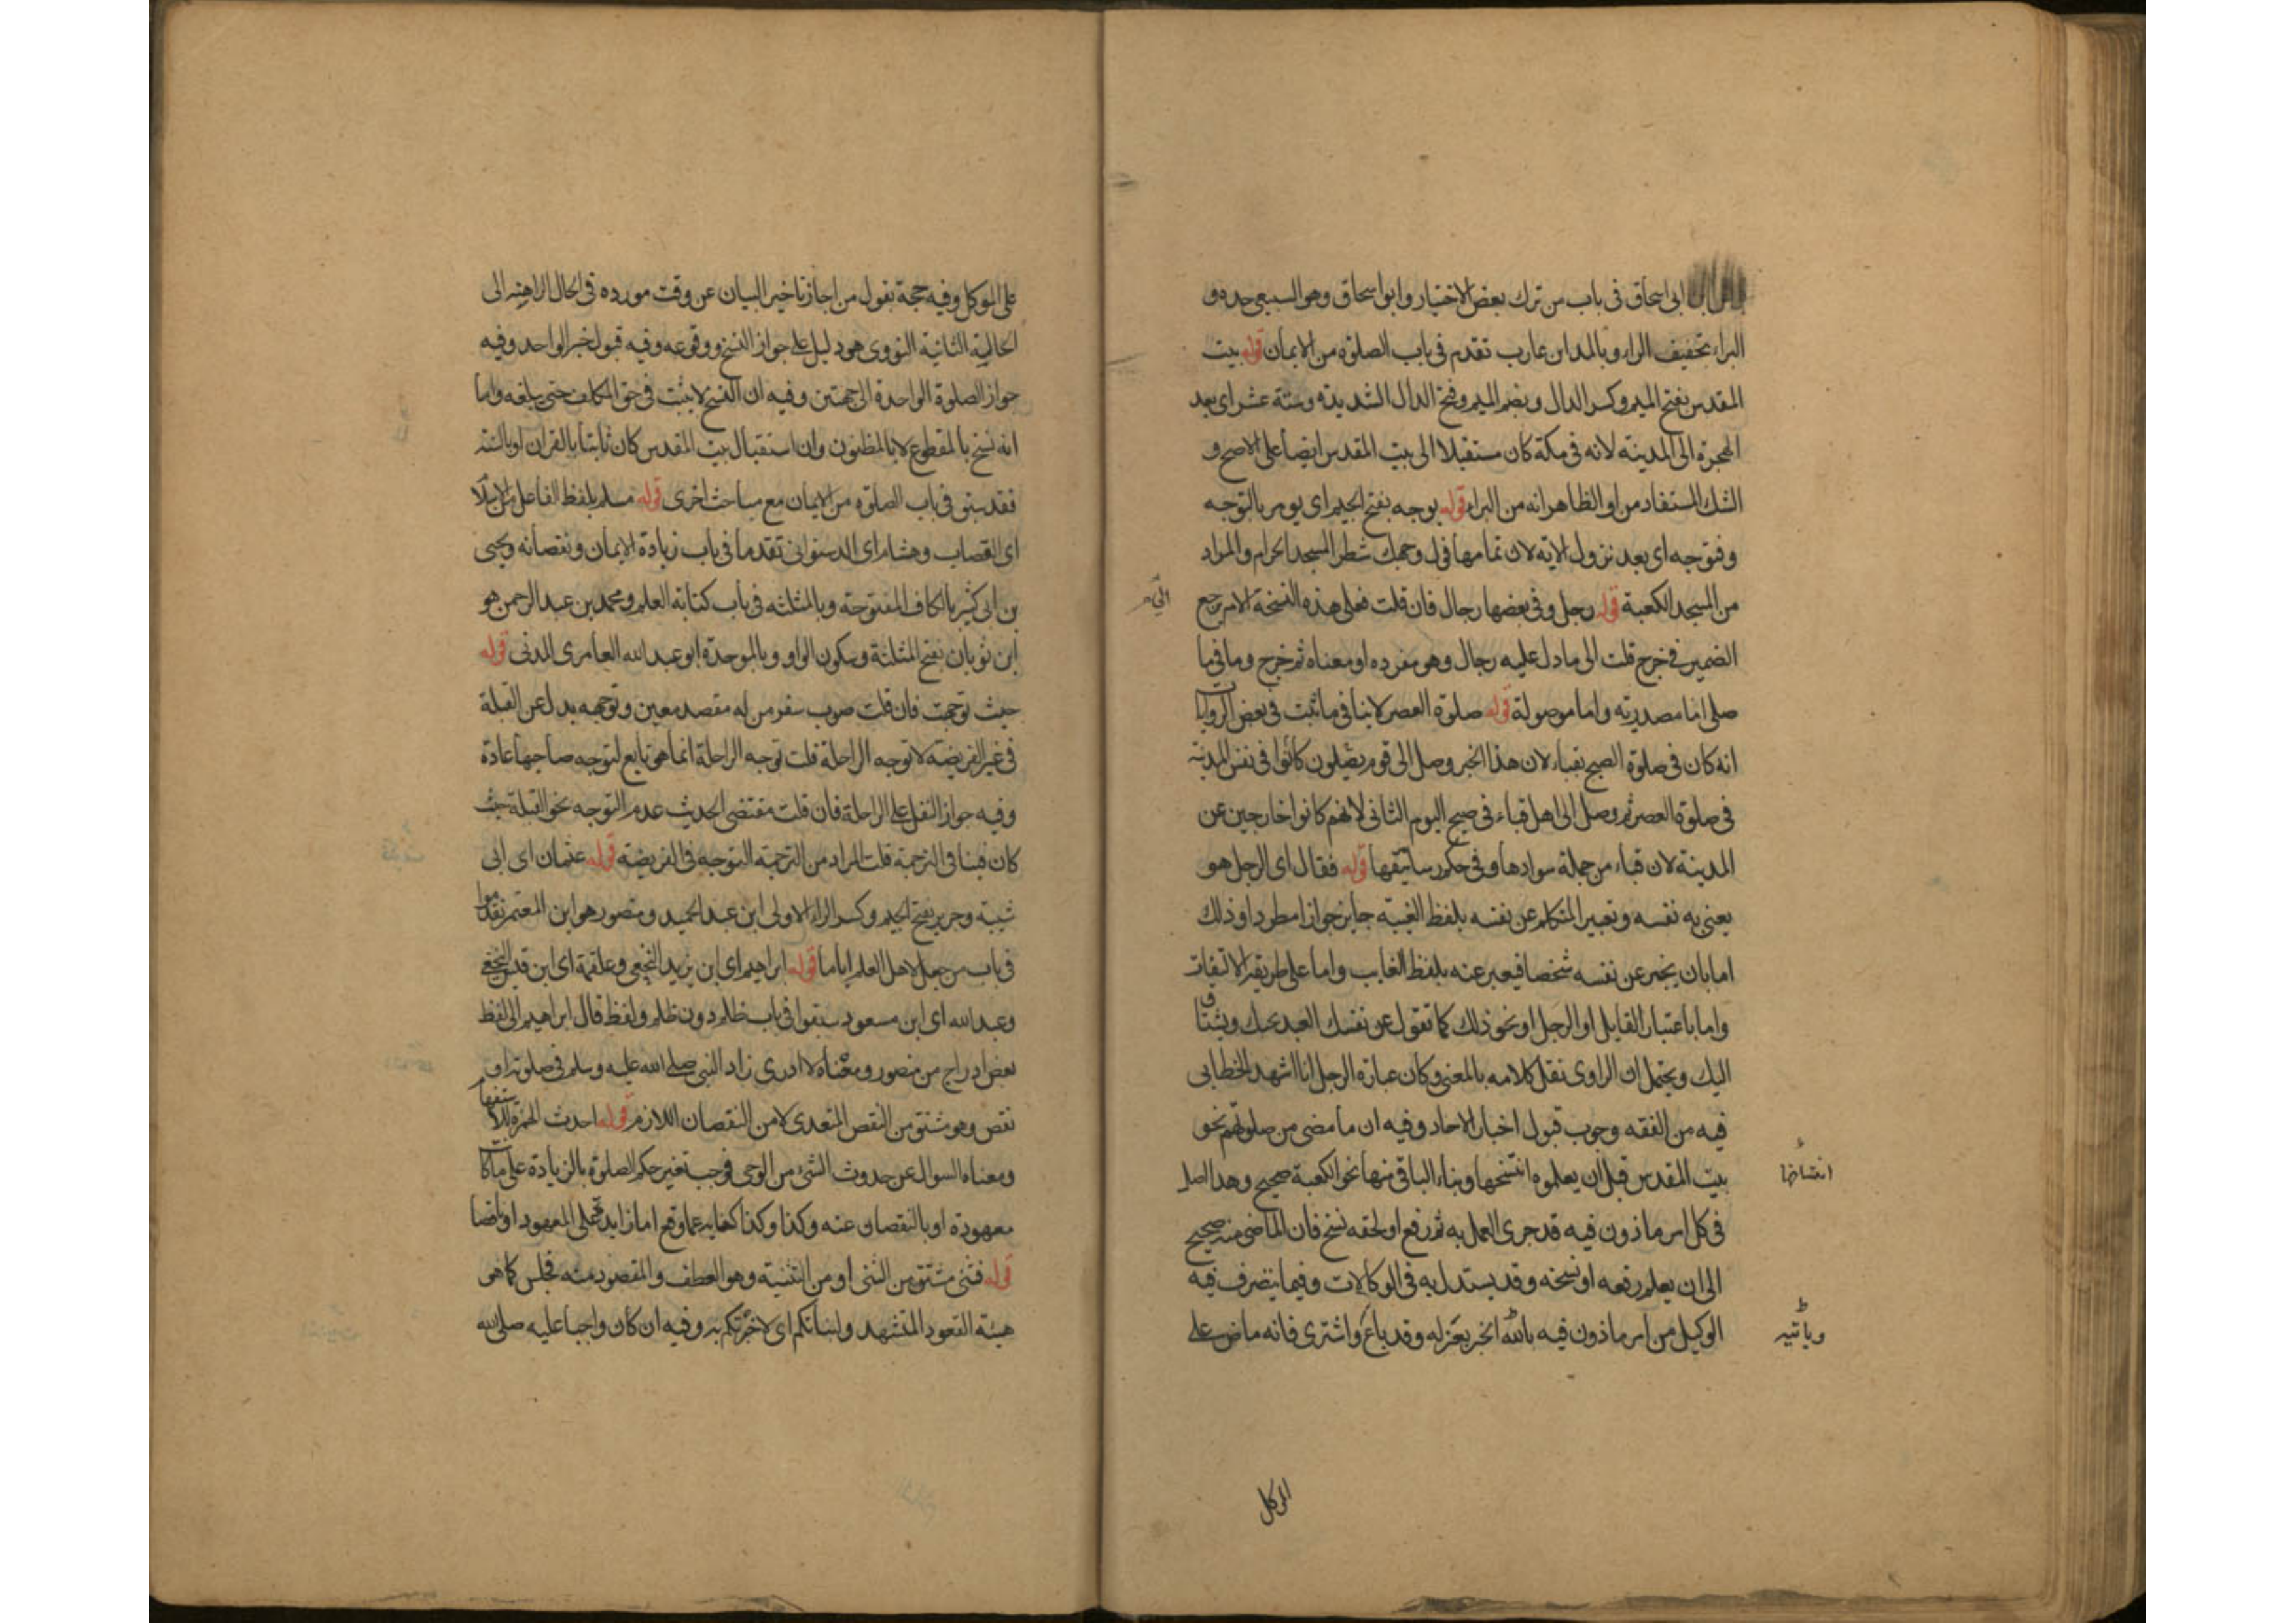 ابى اسحاق فى باب من ترك بعض الاختيار وابو اسحاق وهو السبيعى جده و
البراء بتخفيف الراء وبالمد ابن عازب تقدم فى باب الصلوة من الايمان قوله بيت
المقدس بفتح الميم وكسر الدال وبضم الميم وفتح الدال الشديدة وستة عشر اى بعد
الهجرة الى المدينة لانه فى مكة كان مستقبلا الى بيت المقدس ايضا على الاصح و
الشك المستفاد من او الظاهر انه من البراء قوله يوجه بفتح الجيم اى يومر بالتوجه
وفتوجه اى بعد نزول الاية لان تمامها فول وجهك شطر المسجد الحرام والمراد
من المسجد الكعبة قوله رجل وفى بعضها رجال فان قلت فعلى هذه النسخة الام يرجع
الضمير فى خرج قلت الى ما دل عليه رجال وهو مفرده او معناه ثم خرج وما فى ما
صلى اما مصدرية واما موصولة قوله صلوة العصر لا ينافى ما ثبت فى بعض الروايات
انه كان فى صلوة الصبح بقباء لان هذا الخبر وصل الى قوم يصلون كانوا فى نفس المدينة
فى صلوة العصر ثم وصل الى اهل قباء فى صبح اليوم الثانى لانهم كانوا خارجين عن
المدينة لان قباء من جملة سوادها وفى حكم رساتيقها قوله فقال اى الرجل هو
يعنى به نفسه وتعبير المتكلم عن نفسه بلفظ الغيبة جايز جوازا مطردا وذلك
اما بان يخبر عن نفسه شخصا فيعبر عنه بلفظ الغايب واما على طريقة الالتفات
واما باعتبار القايل او الرجل او نحو ذلك كما تقول عن نفسك العبد يحبك ويشتاق
اليك ويحتمل ان الراوى نقل كلامه بالمعنى وكان عبارة الرجل انا اشهد الخطابى
فيه من الفقه وجوب قبول اخبار الاحاد وفيه ان ما مضى من صلوتهم نحو
بيت المقدس قبل ان يعلموه انتسخها وبناء الباقى منها نحو الكعبة صحيح وهذا اصل
فى كل امر ماذون فيه قد جرى العمل به ثم رفع او لحقه نسخ فان الماضى منه صحيح
الى ان يعلم رفعه او نسخه وقد يستدل به فى الوكالات وفيما يتصرف فيه
الوكيل من امر ماذون فيه بالله الخبر بعزله وقد باع واشترى فانه ماض على
الموكل
وياتيه
على الموكل وفيه حجة بقول من اجاز تاخير البيان عن وقت مورده فى الحال الراهنة الى
الحالية الثانية النووى هو دليل على جواز النسخ ووقوعه وفيه قبول خبر الواحد وفيه
جواز الصلوة الواحدة الى جهتين وفيه ان النسخ لا يثبت فى حق المكلف حتى يبلغه واما
انه نسخ بالمقطوع لا بالمظنون وان استقبال بيت المقدس كان ثابتا بالقران او بالسنة
فقد سبق فى باب الصلوة من الايمان مع مباحث اخرى قوله مسلم بلفظ الفاعل من الاسلام
اى القصاب وهشام اى الدستوائى تقدما فى باب زيادة الايمان ونقصانه ويحيى
بن ابى كثير بالكاف المفتوحة وبالمثلثة فى باب كتابة العلم ومحمد بن عبد الرحمن هو
ابن ثوبان بفتح المثلثة وسكون الواو وبالموحدة ابو عبد الله العامرى المدنى قوله
حيث توجهت فان قلت صوب سفر من له مقصد معين وتوجهه بدل عن القبلة
فى غير الفريضة لا توجه الراحلة قلت توجه الراحلة انما هو تابع لتوجه صاحبها عادة
وفيه جواز النفل على الراحلة فان قلت مقتضى الحديث عدم التوجه نحو القبلة حيث
كان فينافى الترجمة قلت المراد من الترجمة التوجه فى الفريضة قوله عثمان اى ابى
شيبة وجرير بفتح الجيم وكسر الراء الاولى ابن عبد الحميد ومنصور هو ابن المعتمر تقدموا
فى باب من جعل لاهل العلم اياما قوله ابراهيم اى ابن يزيد النخعى وعلقمة اى ابن قيس النخعى
وعبد الله اى ابن مسعود سبقوا فى باب ظلم دون ظلم ولفظ قال ابراهيم الى لفظ
نقص ادراج من منصور ومعناه لا ادرى زاد النبى صلى الله عليه وسلم فى صلوته او
نقص وهو مشتق من النقص المتعدى لا من النقصان اللازم قوله احدث الهمزة للاستفهام
ومعناه السوال عن حدوث الشئ من الوحى يوجب تغير حكم الصلوة بالزيادة على ما كانت
معهودة او بالنقصان عنه وكذا وكذا كناية عما وقع اما زايد على المعهود او ناقصا
قوله فثنى مشتق من الثنى او من التثنية وهو العطف والمقصود منه فجلس كما هى
هيئة القعود للتشهد ولنباتكم اى لاخبرتكم به وفيه ان كان واجبا عليه صلى الله